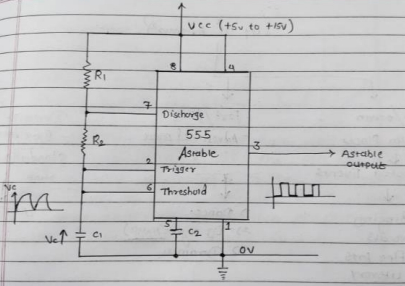 Vcc (+5v to +15v)
8
4
R1
7
Discharge
555
Astable
3
Astable
output
R2
2
Trigger
6
Threshold
Vc
Vc
C1
5
C2
1
0V